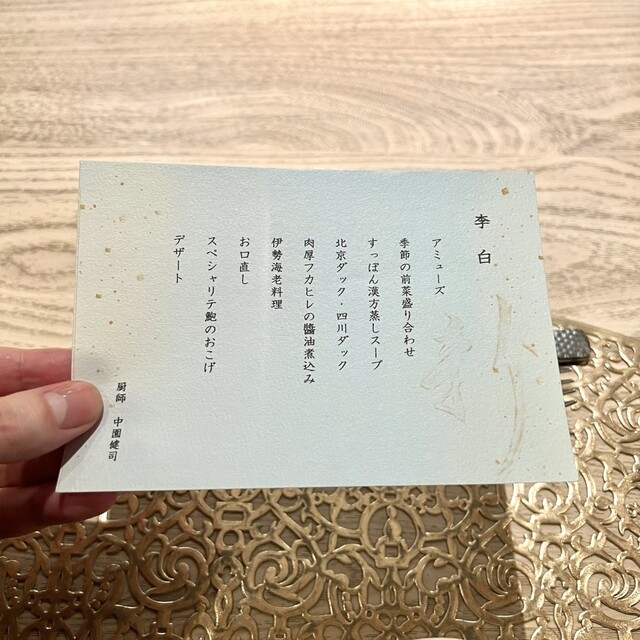 李白
アミューズ
季節の前菜盛り合わせ
すっぽん漢方蒸しスープ
北京ダック・四川ダック
肉厚フカヒレの醬油煮込み
伊勢海老料理
お口直し
スペシャリテ鮑のおこげ
デザート
厨師 中園健司